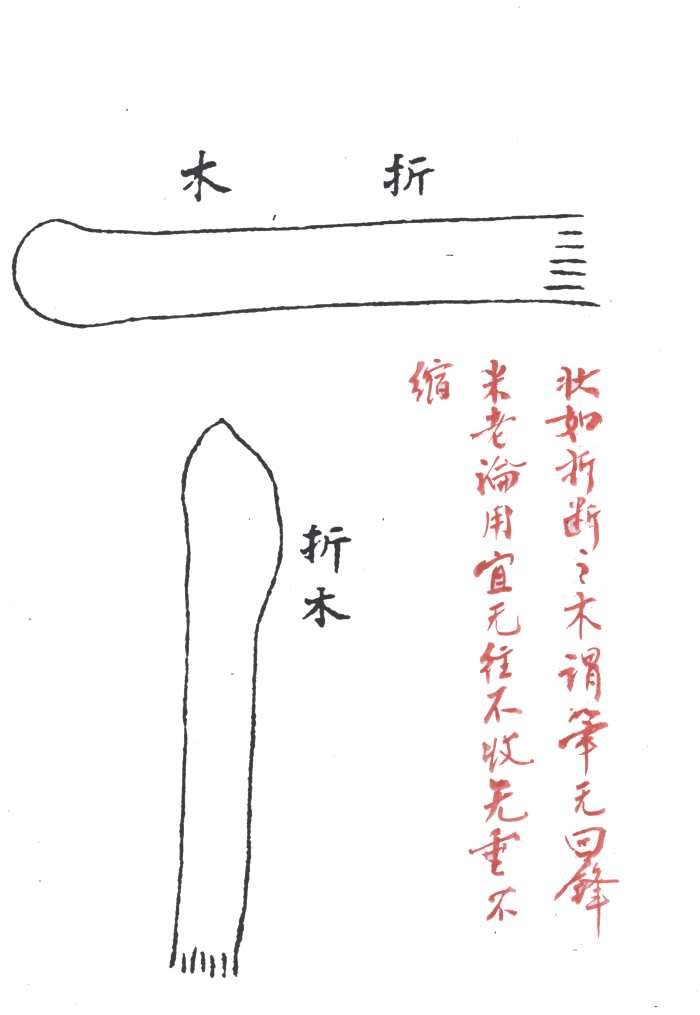 折木
状如折断之木谓筆无回鋒
米老論用宜无往不收无垂不
缩
折木